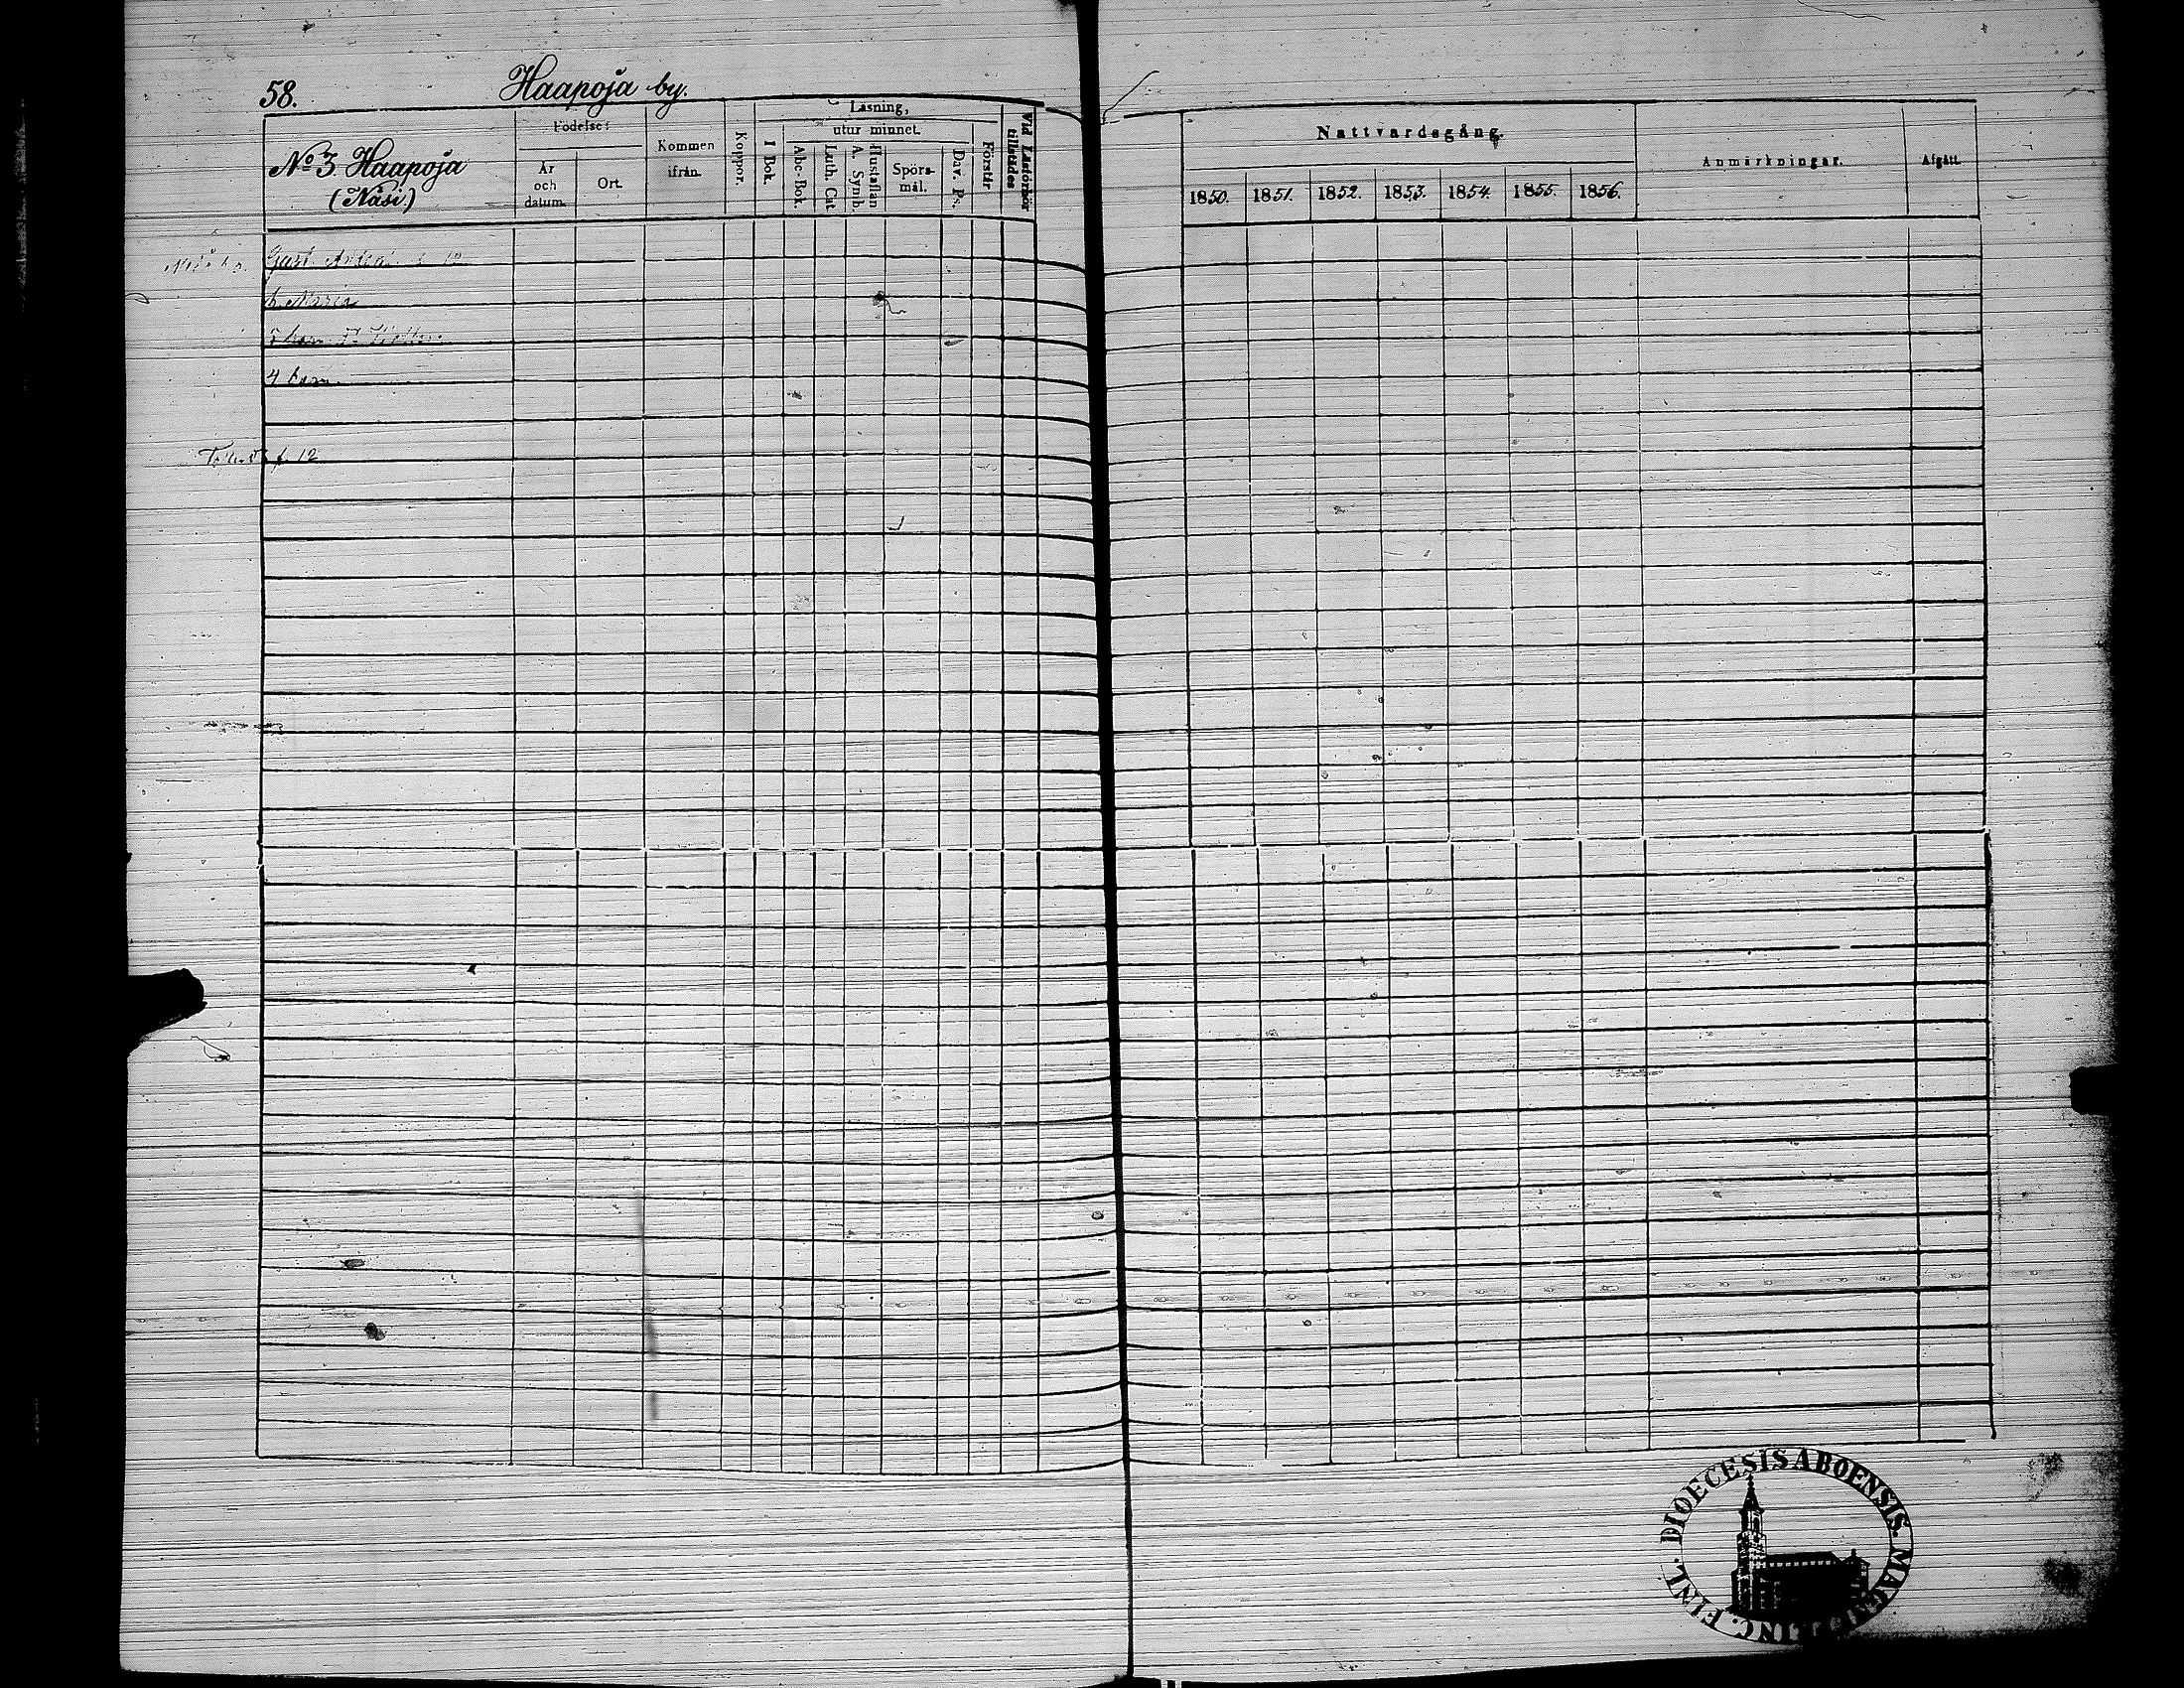 58.
Haapoja by.
No 3. Haapoja
(Näsi)
Födelse:
År
och
datum.
Ort.
Kommen
ifrån.
Koppor.
Läsning,
I Bok.
utur minnet.
Abc-Bok.
Luth. Cat.
A. Symb.
Hustaflan
Spörs-
mål.
Dav. Ps.
Förstår
Vid Läsförhör
tillstädes
Nattvardsgång.
1850. 1851. 1852. 1853. 1854. 1855. 1856.
Anmärkningar.
Afgått.
Gust
h. Maria
4 barn
12
DIOECESIS ABOENSIS. MAGN. PRINC. FINL.